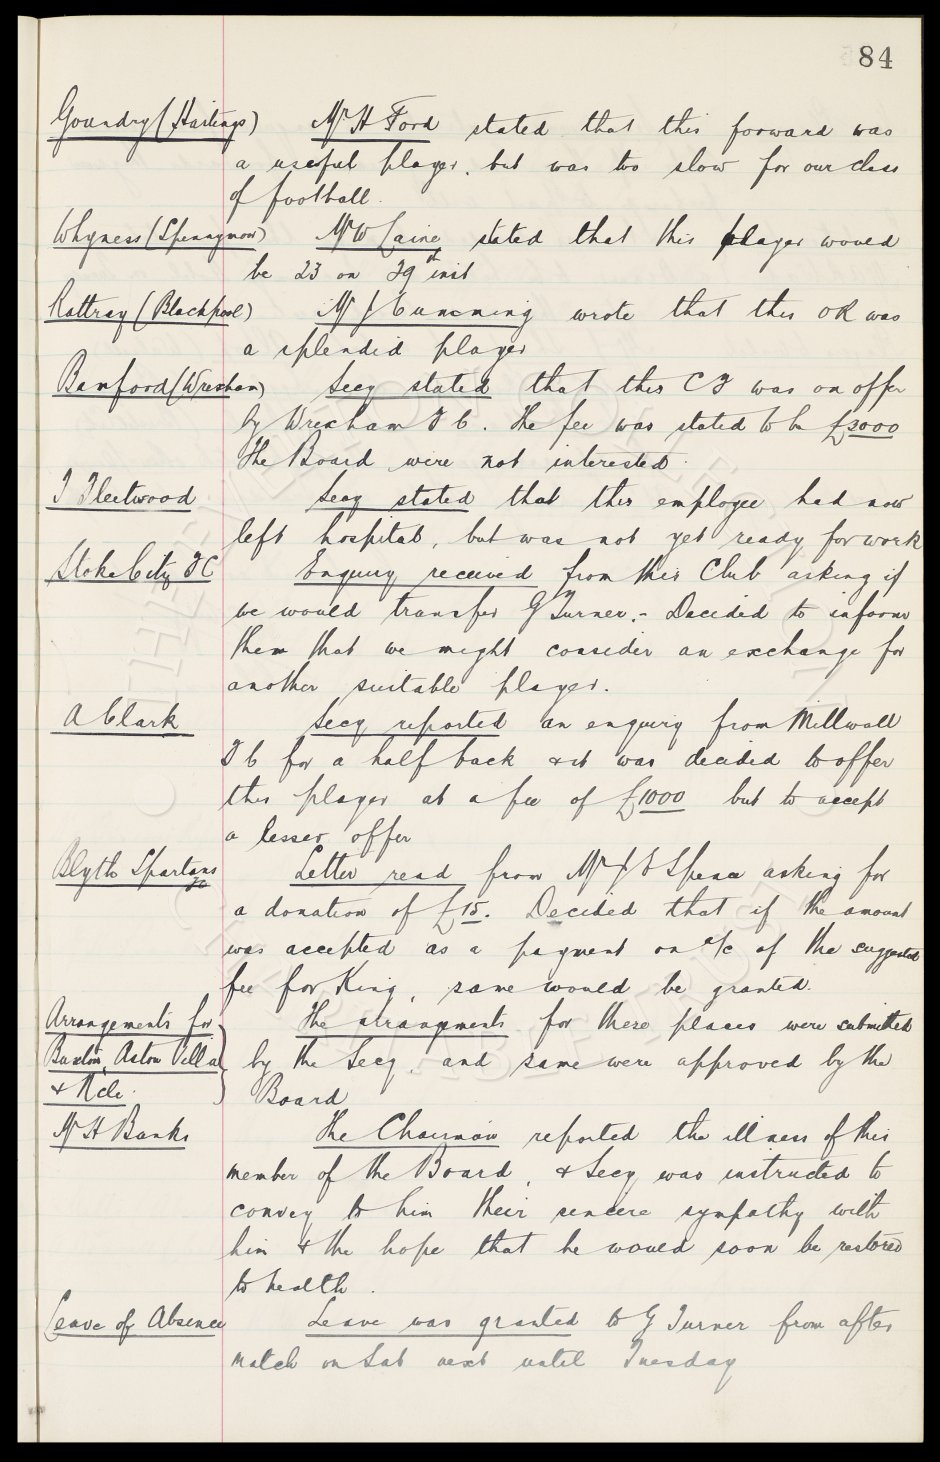 84
Goundry (Hastings) Mr H Ford stated that this forward was
a useful player, but was too slow for our class
of football.
Whyness (Spennymoor) Mr W Caine stated that this player would
be 23 on 29th inst
Rattray (Blackpool) Mr J Cumming wrote that this OR was
a splendid player
Bamford (Wrexham) Secy stated that this C F was on offer
by Wrexham F C. The fee was stated to be £3000
The Board were not interested.
F Fleetwood Secy stated that this employee had now
left hospital, but was not yet ready for work
Stoke City FC Enquiry received from this Club asking if
we would transfer G Turner. - Decided to inform
them that we might consider an exchange for
another suitable player.
A Clark Secy reported an enquiry from Millwall
F C for a half back & it was decided to offer
this player at a fee of £1000 but to accept
a lesser offer
Blyth Spartans Letter read from Mr Spence asking for
a donation of £15. Decided that if the amount
was accepted as a payment on a/c of the suggested
fee for King, same would be granted.
Arrangements for The arrangements for these places were submitted
Buxton, Aston Villa by the Secy, and same were approved by the
& Board
Mr H Banks The Chairman reported the illness of this
member of the Board, & Secy was instructed to
convey to him their sincere sympathy with
him & the hope that he would soon be restored
to health.
Leave of Absence Leave was granted to G Turner from after
match on Sat next until Tuesday